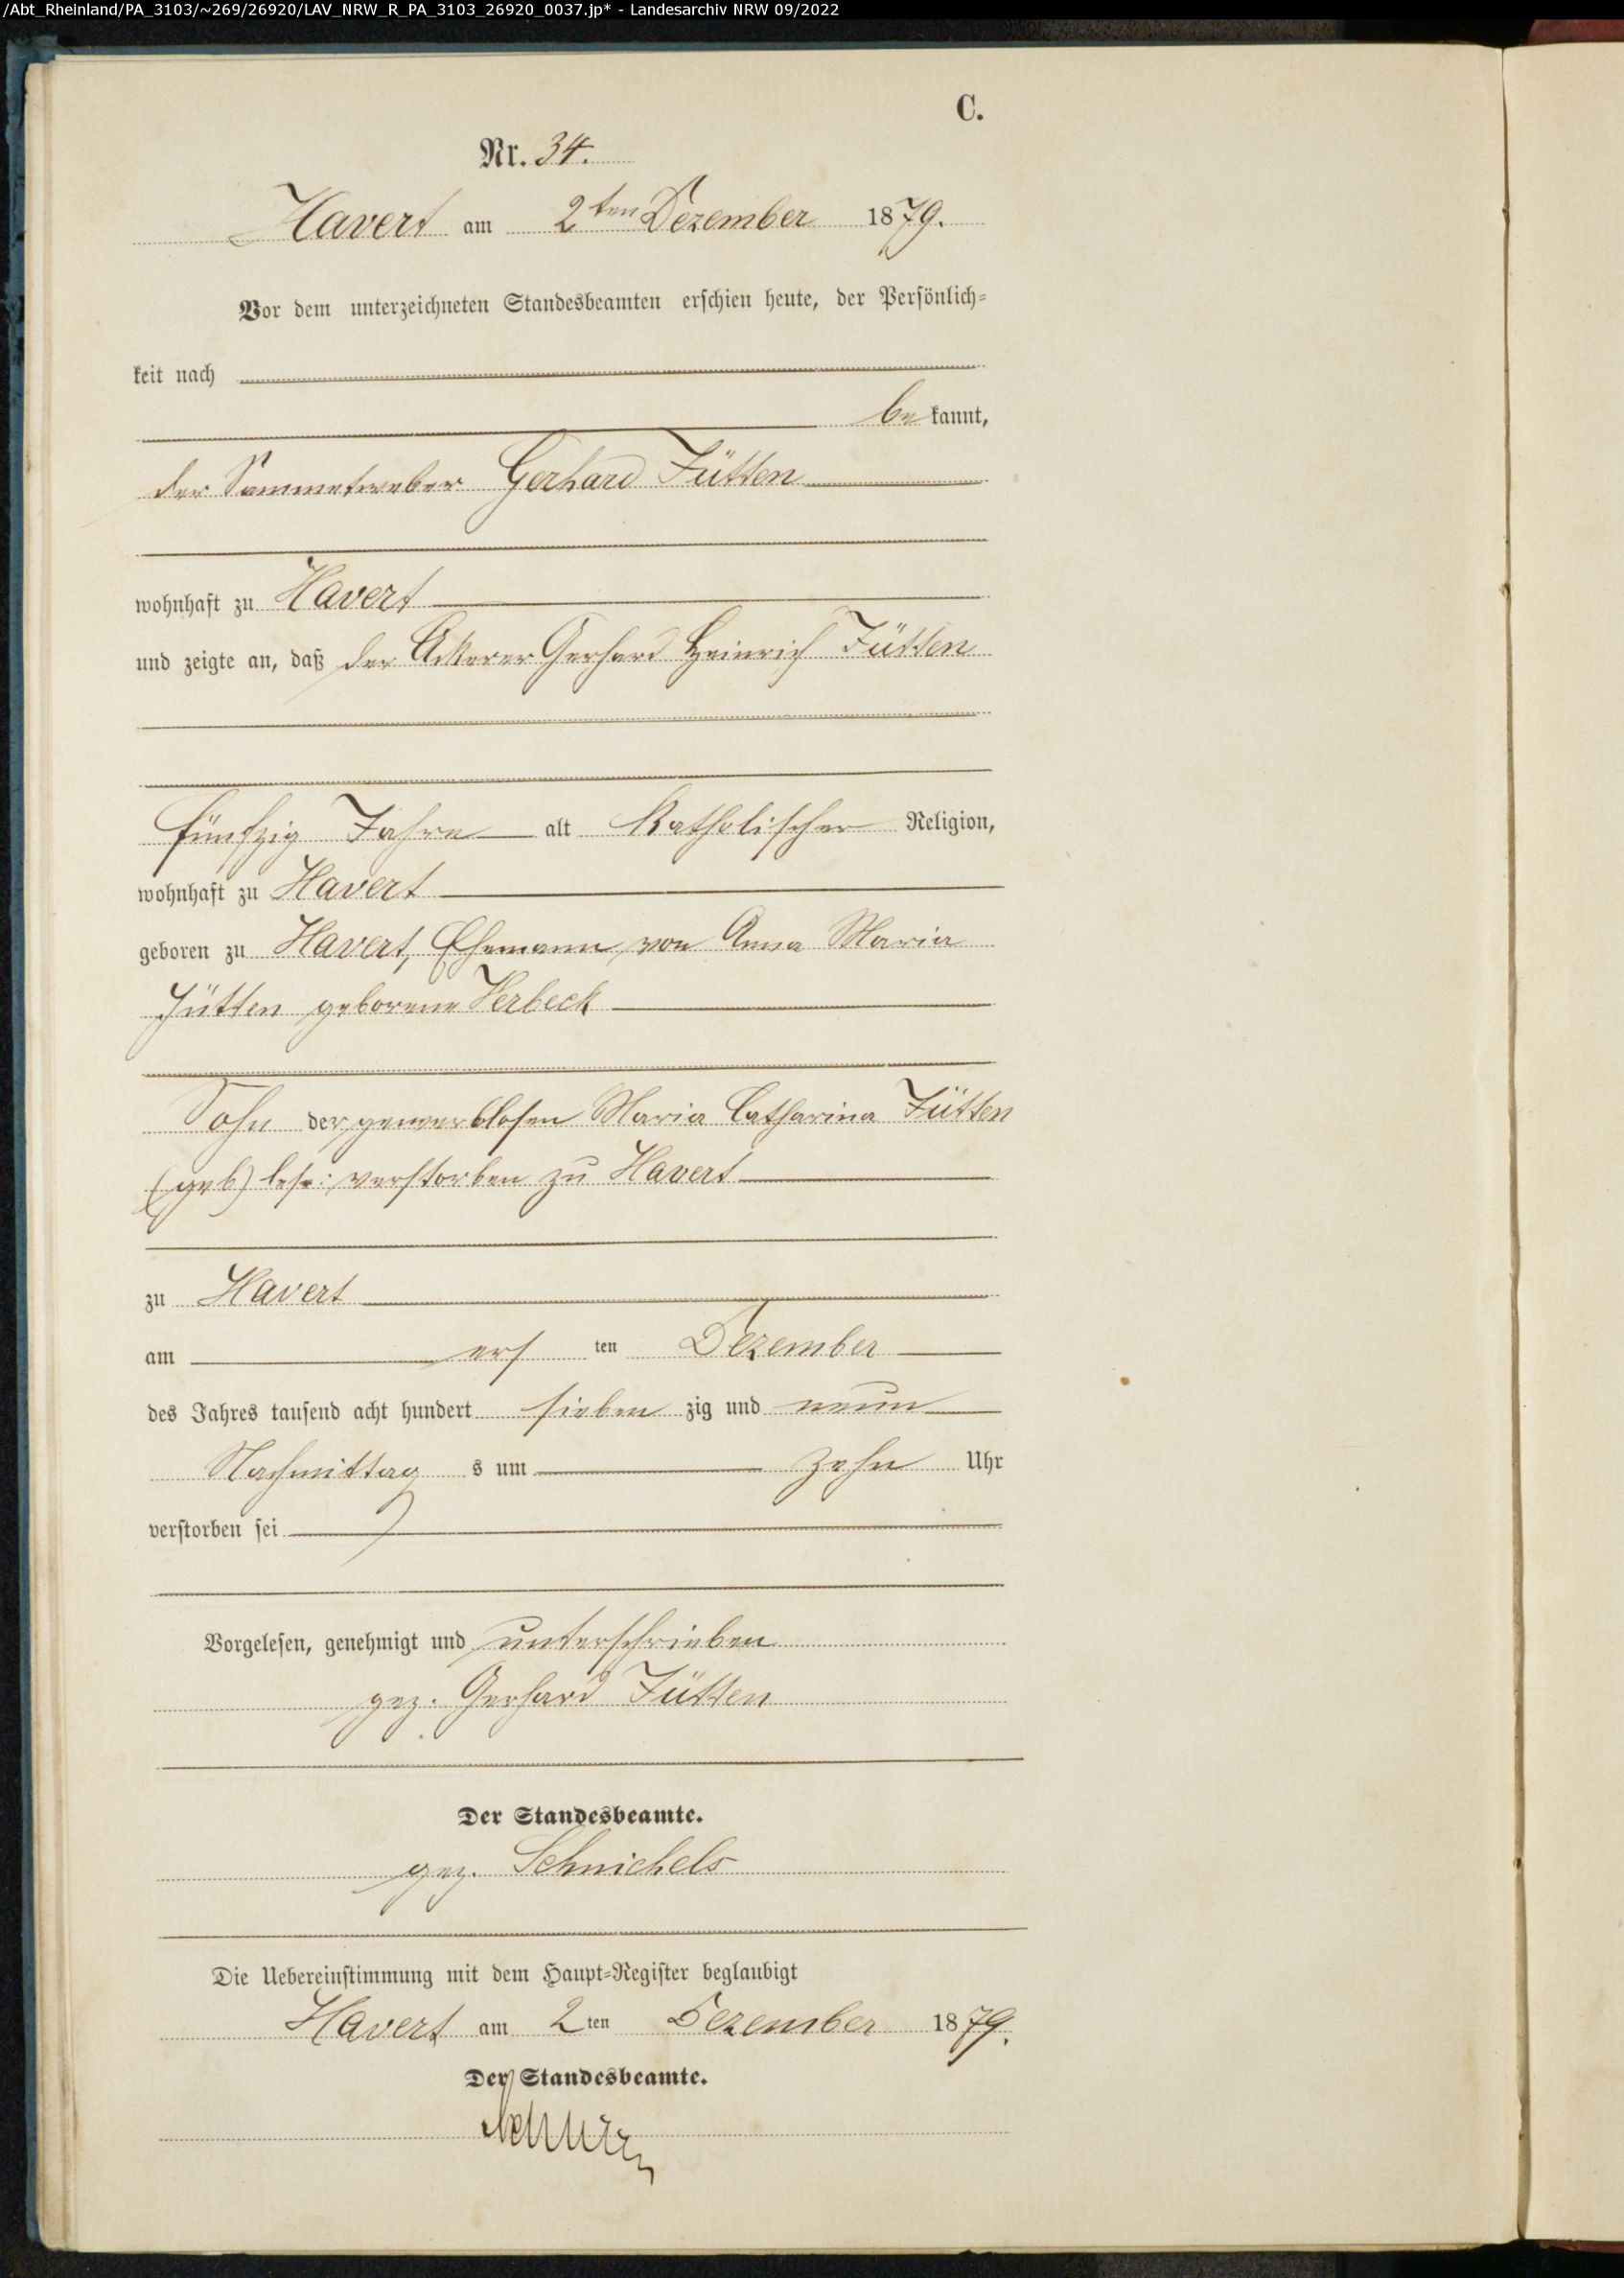 /Abt_Rheinland/PA_3103/~269/26920/LAV_NRW_R_PA_3103_26920_0037.jp* - Landesarchiv NRW 09/2022
C.
Nr. 34.
Havert am 2ten Dezember 1879.
Vor dem unterzeichneten Standesbeamten erschien heute, der Persönlich=
keit nach
be kannt,
der Sammetweber Gerhard Jütten
wohnhaft zu Havert
und zeigte an, daß der Ackerer Gerhard Heinrich Jütten
fünfzig Jahre alt Katholischer Religion,
wohnhaft zu Havert
geboren zu Havert, Ehemann von Anna Maria
Jütten geborene Verbeck
Sohn der gewerblosen Maria Catharina Jütten
(geb) lese: verstorben zu Havert
zu Havert
am ers ten Dezember
des Jahres tausend acht hundert sieben zig und neun
Nachmittag s um zehn Uhr
verstorben sei
Vorgelesen, genehmigt und unterschrieben
gez. Gerhard Jütten
Der Standesbeamte.
gez. Schnichels
Die Uebereinstimmung mit dem Haupt=Register beglaubigt
Havert am 2 ten Dezember 1879.
Der Standesbeamte.